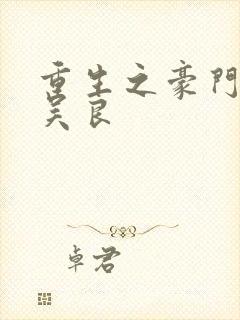 重生之豪門
吴良
卓君